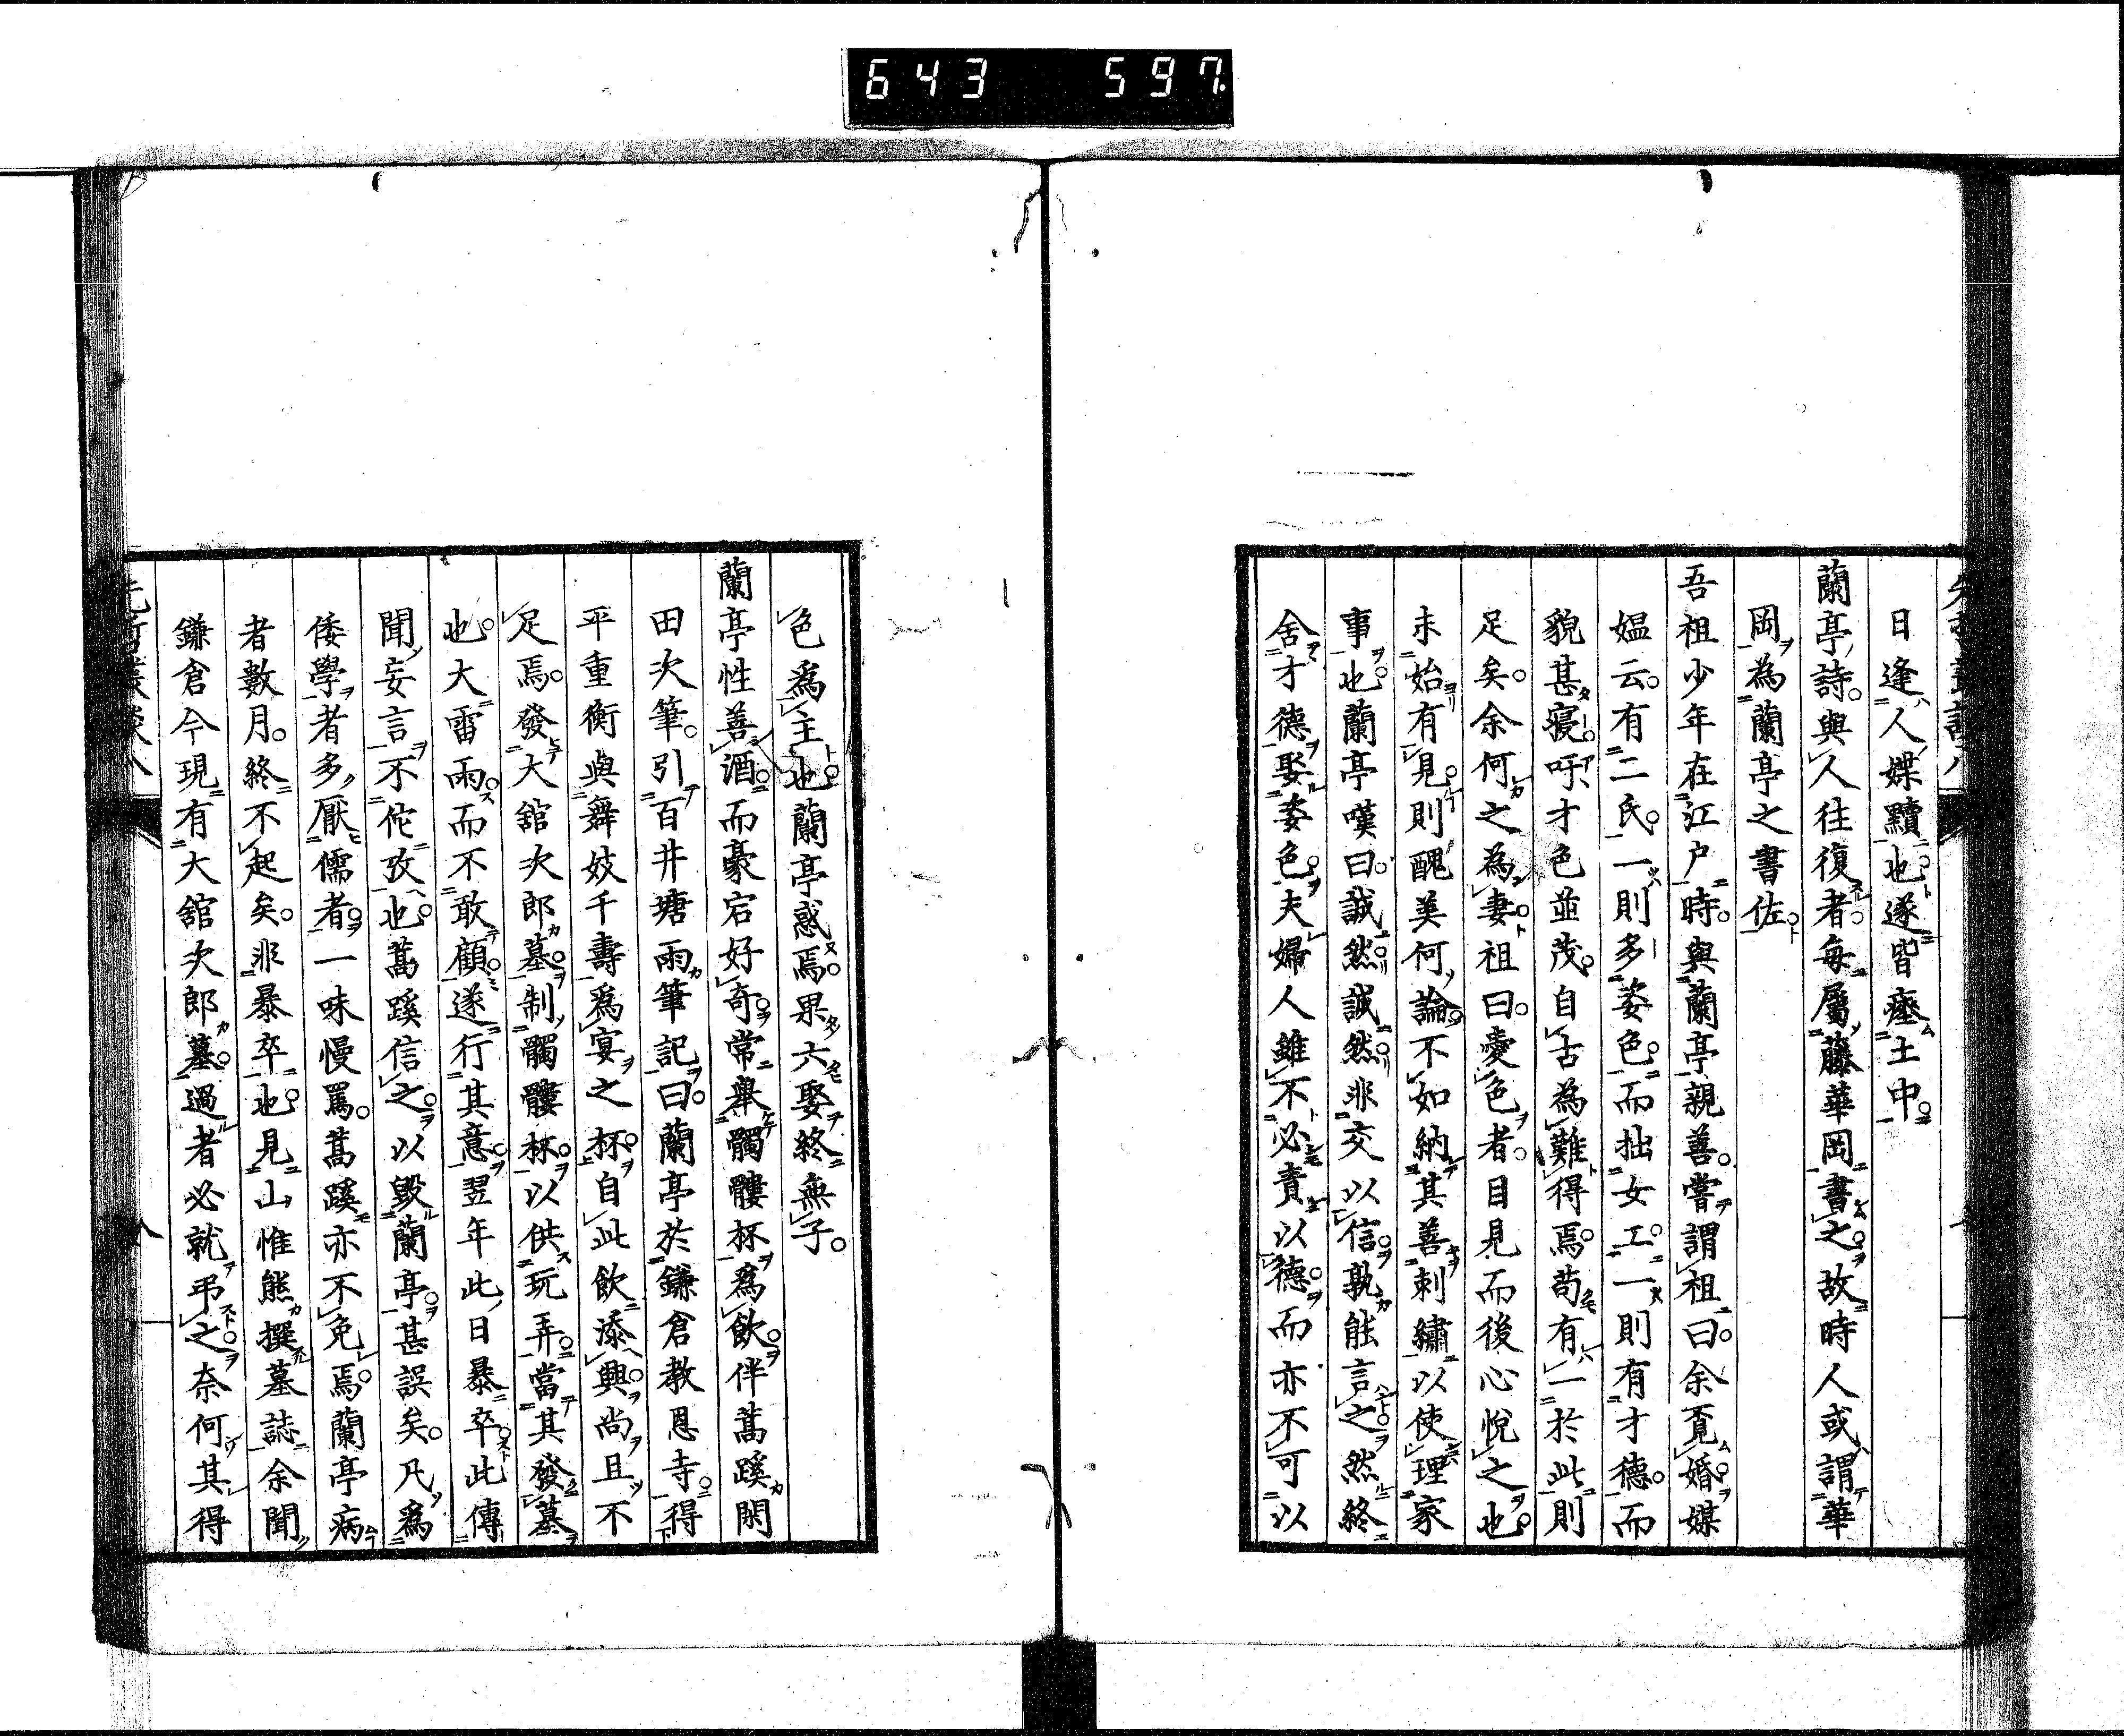 643 597
日逢人媟黷也遂皆瘞土中
蘭亭詩與人往復者每屬藤華岡書之故時人或謂華
岡為蘭亭之書佐
吾祖少年在江戶時與蘭亭親善嘗謂祖曰余覔婚媒
媼云有二氏一則多姿色而拙女工一則有才德而
貌甚寢吁才色並茂自古為難得焉苟有一於此則
足矣余何之為妻祖曰愛色者目見而後心悅之也
未始有見則醜美何論不如納其善刺繡以使理家
事也蘭亭嘆曰誠然誠然非交以信孰能言之然終
舍才德娶姿色夫婦人雖不必責以德而亦不可以
色爲主也蘭亭惑焉果六娶終無子
蘭亭性善酒而豪宕好奇常舉髑髏杯爲飲伴蒿蹊閑
田次筆引百井塘雨筆記曰蘭亭於鎌倉教恩寺得
平重衡與舞妓千壽爲宴之杯自此飲添興尚且不
足焉發大舘次郎墓制髑髏杯以供玩弄當其發墓
也大雷雨而不敢顧遂行其意翌年此日暴卒此傳
聞妄言不佗攷也蒿蹊信之以毀蘭亭甚誤矣凡爲
倭學者多厭儒者一味慢罵蒿蹊亦不免焉蘭亭病
者數月終不起矣非暴卒也見山惟熊撰墓誌余聞
鎌倉今現有大舘次郎墓過者必就弔之奈何其得